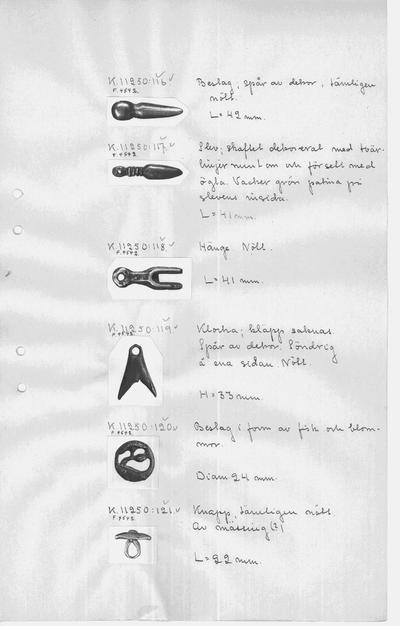 K.11250:116.
F.4542.
Beslag, spår av dekor, tämligen
nött.
L=42 mm.
K.11250:117.
F.4542
Slev; skaftet dekorerat med tvär-
linjer runt om och försett med
ögla. Vacker grön patina på
slevens insida.
L=41 mm.
K.11250:118.
F.4542.
Hänge. Nött.
L=41 mm.
K.11250:119.
F.4542.
Klocka; kläpp saknas.
Spår av dekor. Söndrig
å ena sidan. Nött.
H=33 mm.
K.11250:120.
F.4542.
Beslag i form av fisk och blom-
mor.
Diam 24 mm.
K.11250:121.
F.4542.
Knapp, tämligen nött.
Av mässing (?)
L=22 mm.